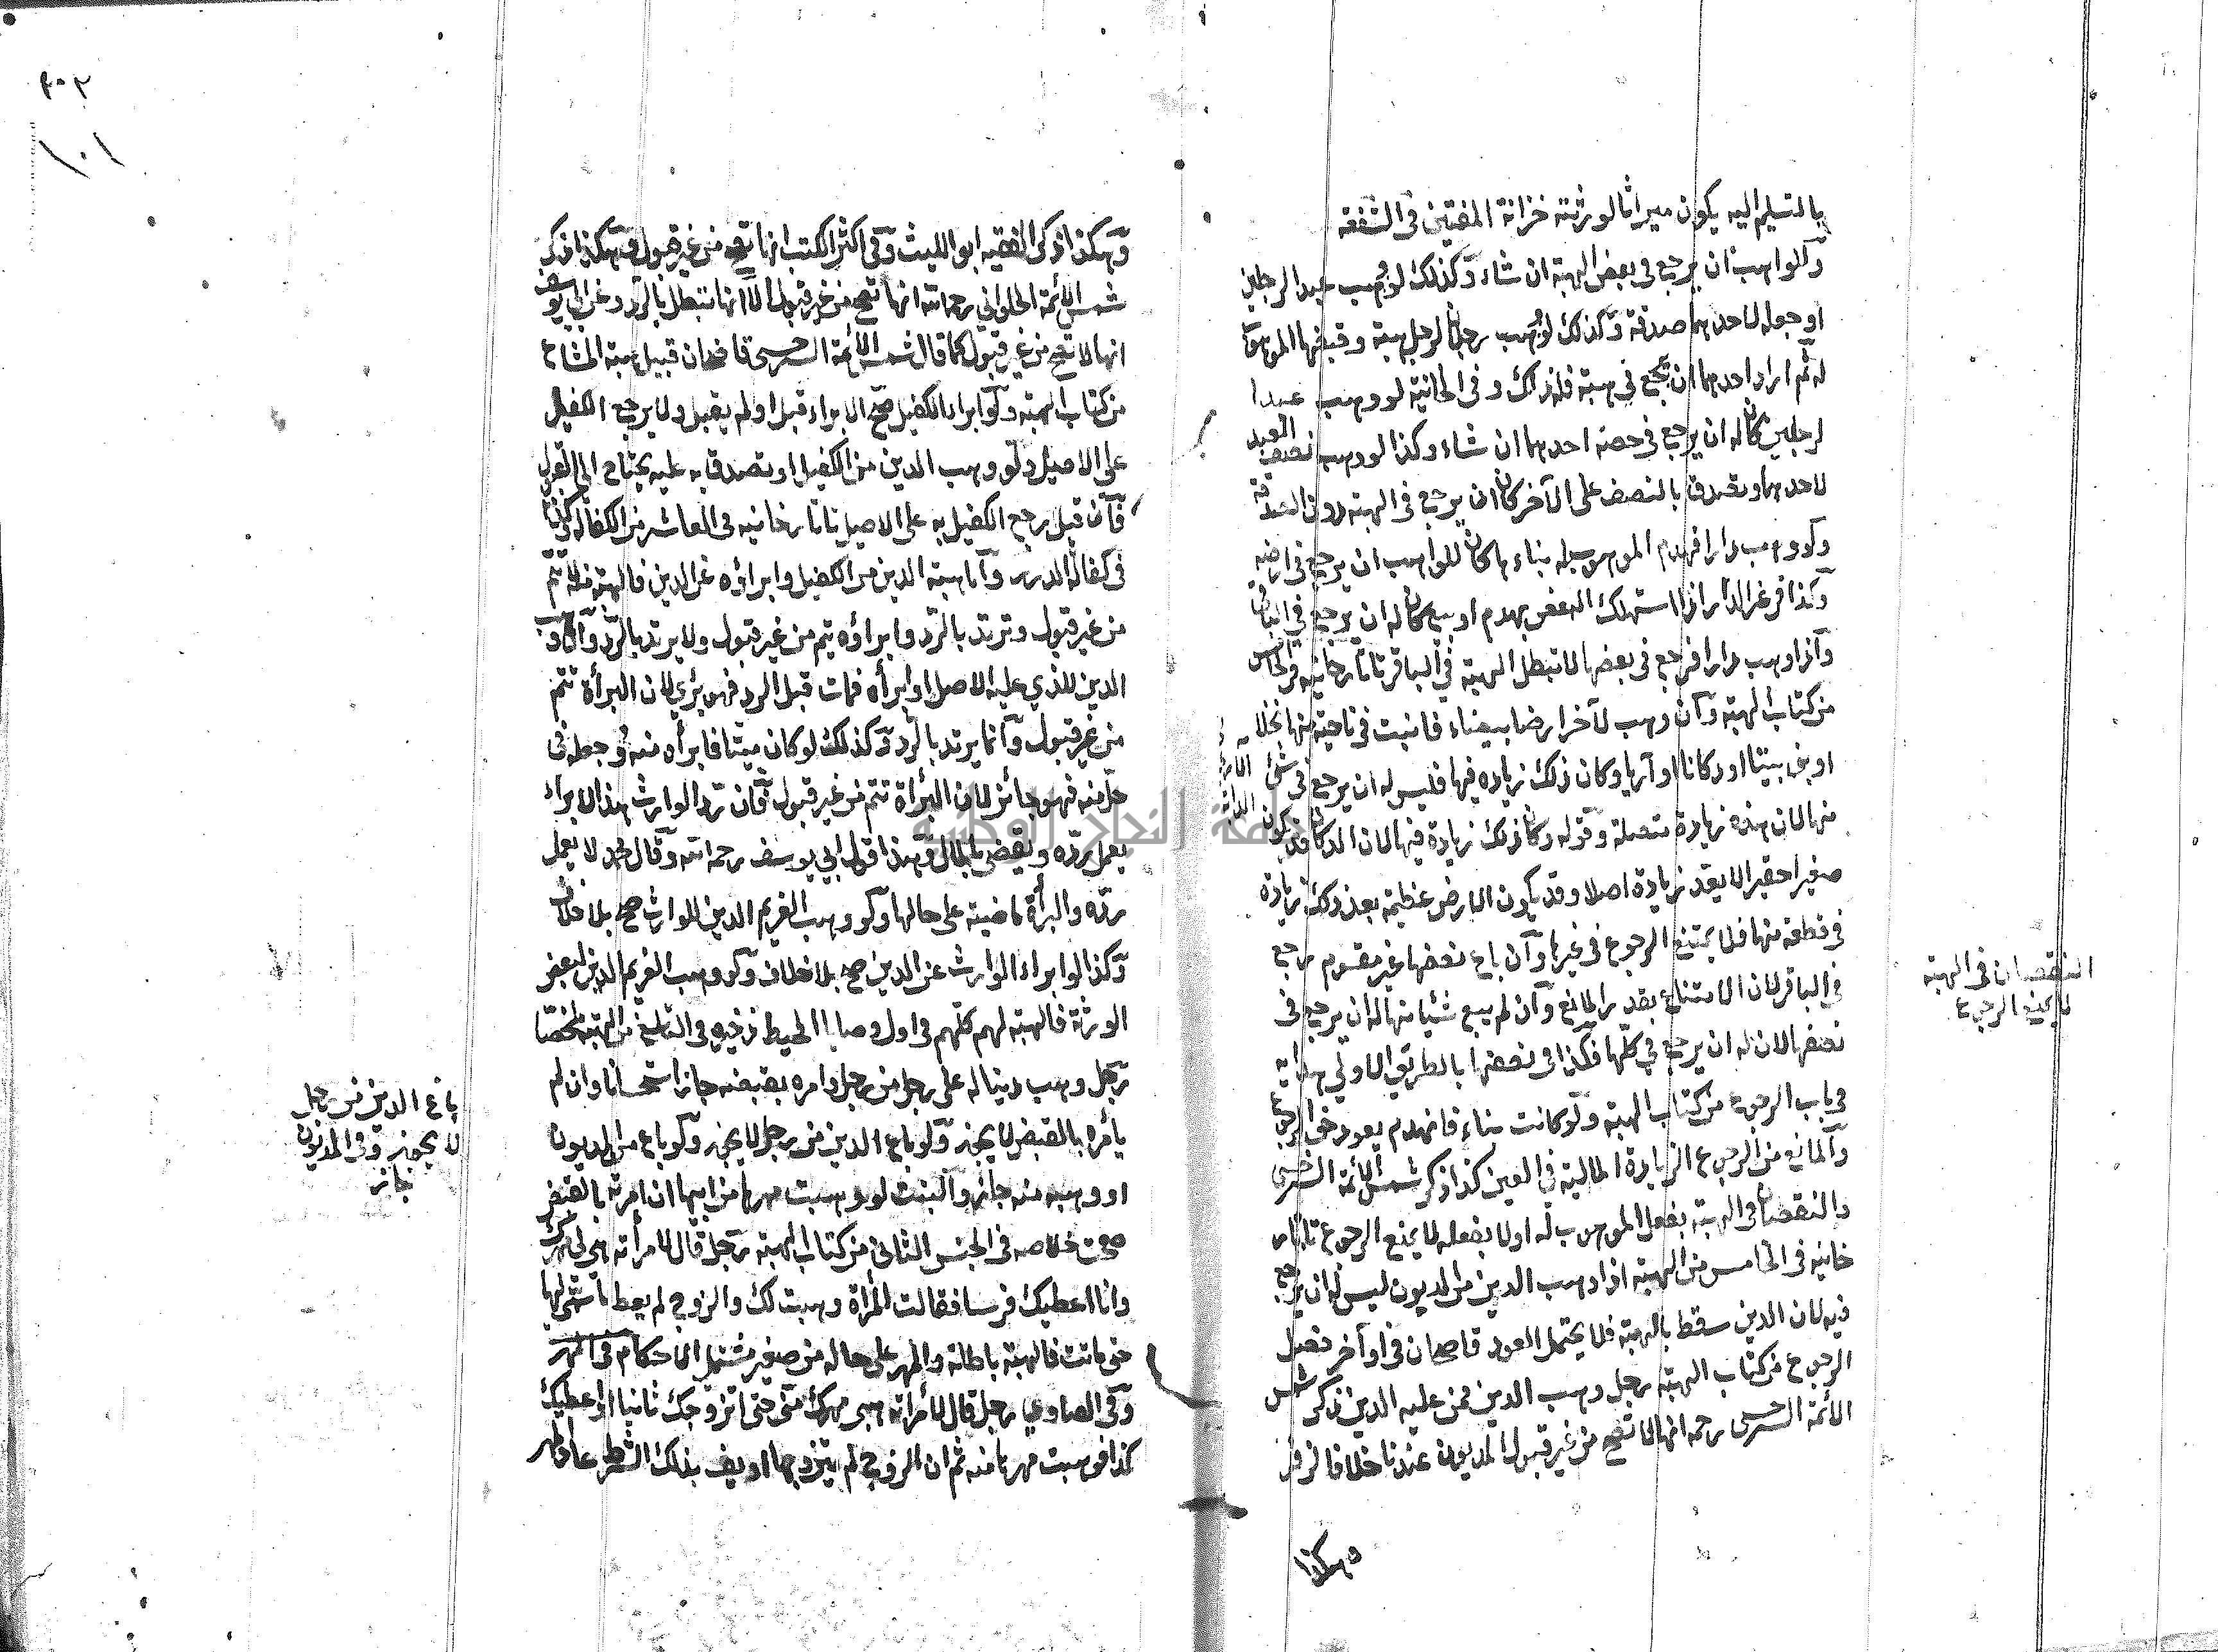 بالتسليم اليه يكون ميراثا لورثته خزانة المفتين فى الشفعة
وللواهب ان يرجع فى بعض الهبة ان شاء وكذلك لو وهب عبدا لرجلين
او جعله لاحدهما صدقة وكذلك لو وهب رجلان لرجل هبة وقبضها الموهوب
له ثم اراد احدهما ان يرجع فى هبته فله ذلك وفى الخانية لو وهب عبدا
لرجلين كان له ان يرجع فى حصة احدهما ان شاء وكذا لو وهب نصف العبد
لاحدهما وتصدق بالنصف على الآخر كان ان يرجع فى الهبة دون الصدقة
ولو وهب دارا فهدم الموهوب له بناءها كان للواهب ان يرجع فى ارضه
وكذا فى غير الدار اذا استهلك البعض بهدم او بيع كان له ان يرجع فى الباقى
واذا وهب دارا فرجع فى بعضها لا تبطل الهبة فى الباقى تاتارخانيه فى الخامس
من كتاب الهبة وان وهب لآخر ارضا بيضاء فانبت فى ناحية منها نخلا
او بنى بيتا او دكانا او آريا وكان ذلك زيادة فيها فليس له ان يرجع فى شئ
منها لان هذه زيادة متصلة وقوله وكان ذلك زيادة فيها لان الدكان قد يكون
صغيرا حقيرا لا يعد زيادة اصلا وقد يكون الارض عظيمة يعد ذلك زيادة
فى قطعة منها فلا يمتنع الرجوع فى غيرها وان باع نصفها غير مقسوم رجع
فى الباقى لان الامتناع بقدر المانع وان لم يبع شئيا منها له ان يرجع فى
نصفها لان له ان يرجع فى كلها فكذا فى نصفها بالطريق الاولى هداية
فى باب الرجوع من كتاب الهبة ولو كانت بناء فانهدم يعود حق الرجوع
والمانع من الرجوع الزيادة المالية فى العين كذا ذكر شمس الأئمة السرخسى
والنقصان فى الهبة بفعل الموهوب له اولا بفعله لا يمنع الرجوع تاتار
خانيه فى الخامس من الهبة اذا وهب الدين من المديون ليس له ان يرجع
فيه لان الدين سقط بالهبة فلا يحتمل العود قاضخان فى اواخر فصل
الرجوع من كتاب الهبة رجل وهب الدين ممن عليه الدين ذكر شمس
الأئمة السرخسى رحمه انها لا تصح من غير قبول المديون عندنا خلافا لزفر
وهكذا
النقصان فى الهبة
لا يمنع الرجوع
٢٠٢
١٠١
وهكذا ذكر الفقيه ابو الليث وفى اكثر الكتب انها تصح من غير قبول وهكذا ذكر
شمس الأئمة الحلوانى رحمه الله انها تصح من غير قبول الا انها تبطل بالرد وعن ابى يوسف
انها لا تصح من غير قبول كما قال شمس الأئمة السرخسى قاضخان قبيل هبة المشاع
من كتاب الهبة ولو ابراء الكفيل صح الابراء قبل او لم يقبل ولا يرجع الكفيل
على الاصيل ولو وهب الدين من الكفيل او تصدق به عليه يحتاج الى القبول
فان قبل يرجع الكفيل به على الاصيل تاتارخانيه فى العاشر من الكفالة
فى كفالة الدرر واما هبة الدين من الكفيل وابراؤه عن الدين فالهبة لا تتم
من غير قبول وترتد بالرد وابراؤه يتم من غير قبول ولا يرتد بالرد
الدين للذي عليه الاصل او ابرأه فمات قبل الرد فهو برئ لان البرأة تتم
من غير قبول وانما يرتد بالرد وكذلك لو كان ميتا فابرأه منه وجعله فى
حل منه فهو جائز لان البرأة تتم من غير قبول فان رد الوارث هذا الابراء
يعمل برده ويقضى بالمال وهذا قول ابى يوسف رحمه الله وقال محمد لا يعمل
رده والبرأة ماضية على حالها ولو وهب الغريم الدين للوارث صح بلا خلاف
وكذا لو ابراء الوارث عن الدين صح بلا خلاف ولو وهب الغريم الدين لبعض
الورثة فالهبة لهم كلهم فى اول وصايا المحيط
رجل وهب دينا له على رجل من رجل وامره بقبضه جاز استحسانا وان لم
يأمره بالقبض لا يجوز ولو باع الدين من رجل لا يجوز ولو باع من المديون
او وهبه منه جاز والبنت لو وهبت مهرها من ابيها ان امرته بالقبض
صحت خلاصه فى الجنس الثانى من كتاب الهبة رجل قال لامرأته هبى لى مهرك
وانا اعطيك فرسا فقالت المرأة وهبت لك والزوج لم يعط ما سمى لها
حتى ماتت فالهبة باطلة والمهر على حاله من صغير مشتمل الاحكام فى المهر
وفى الصاوي رجل قال لامرأته هبى مهرك منى حتى اتزوجك ثانيا او اعطيك
كذا فوهبت مهرها منه ثم ان الزوج لم يتزوجها او يف بذلك الشرط عاد المهر
باع الدين من رجل
لا يجوز وفى المديون
جاز
جامعة النجاح الوطنية